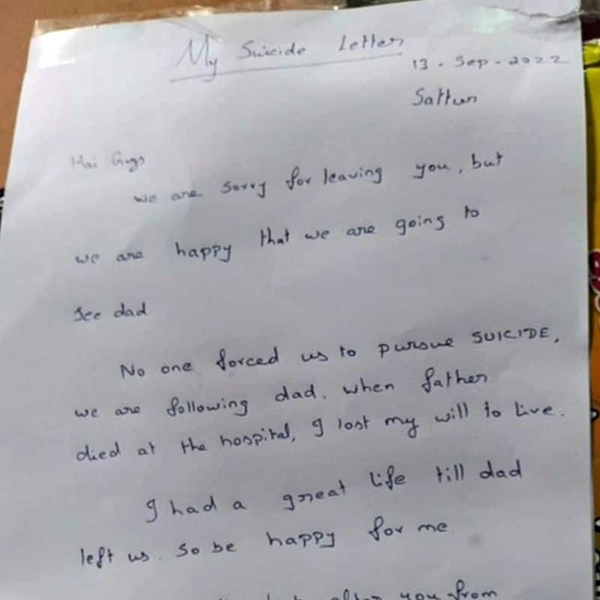 My Suicide Letter
13 - Sep - 2022
Sattur
Hai Guys
we are sorry for leaving you, but
we are happy that we are going to
See dad
No one forced us to pursue SUICIDE,
we are following dad. when father
died at the hospital, I lost my will to live.
I had a great life till dad
left us. So be happy for me
after you from